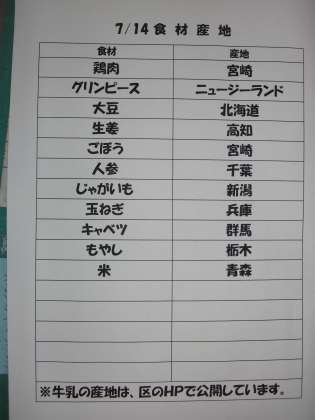 7/14 食材産地
食材 産地
鶏肉 宮崎
グリンピース ニュージーランド
大豆 北海道
生姜 高知
ごぼう 宮崎
人参 千葉
じゃがいも 新潟
玉ねぎ 兵庫
キャベツ 群馬
もやし 栃木
米 青森
※牛乳の産地は、区のHPで公開しています。